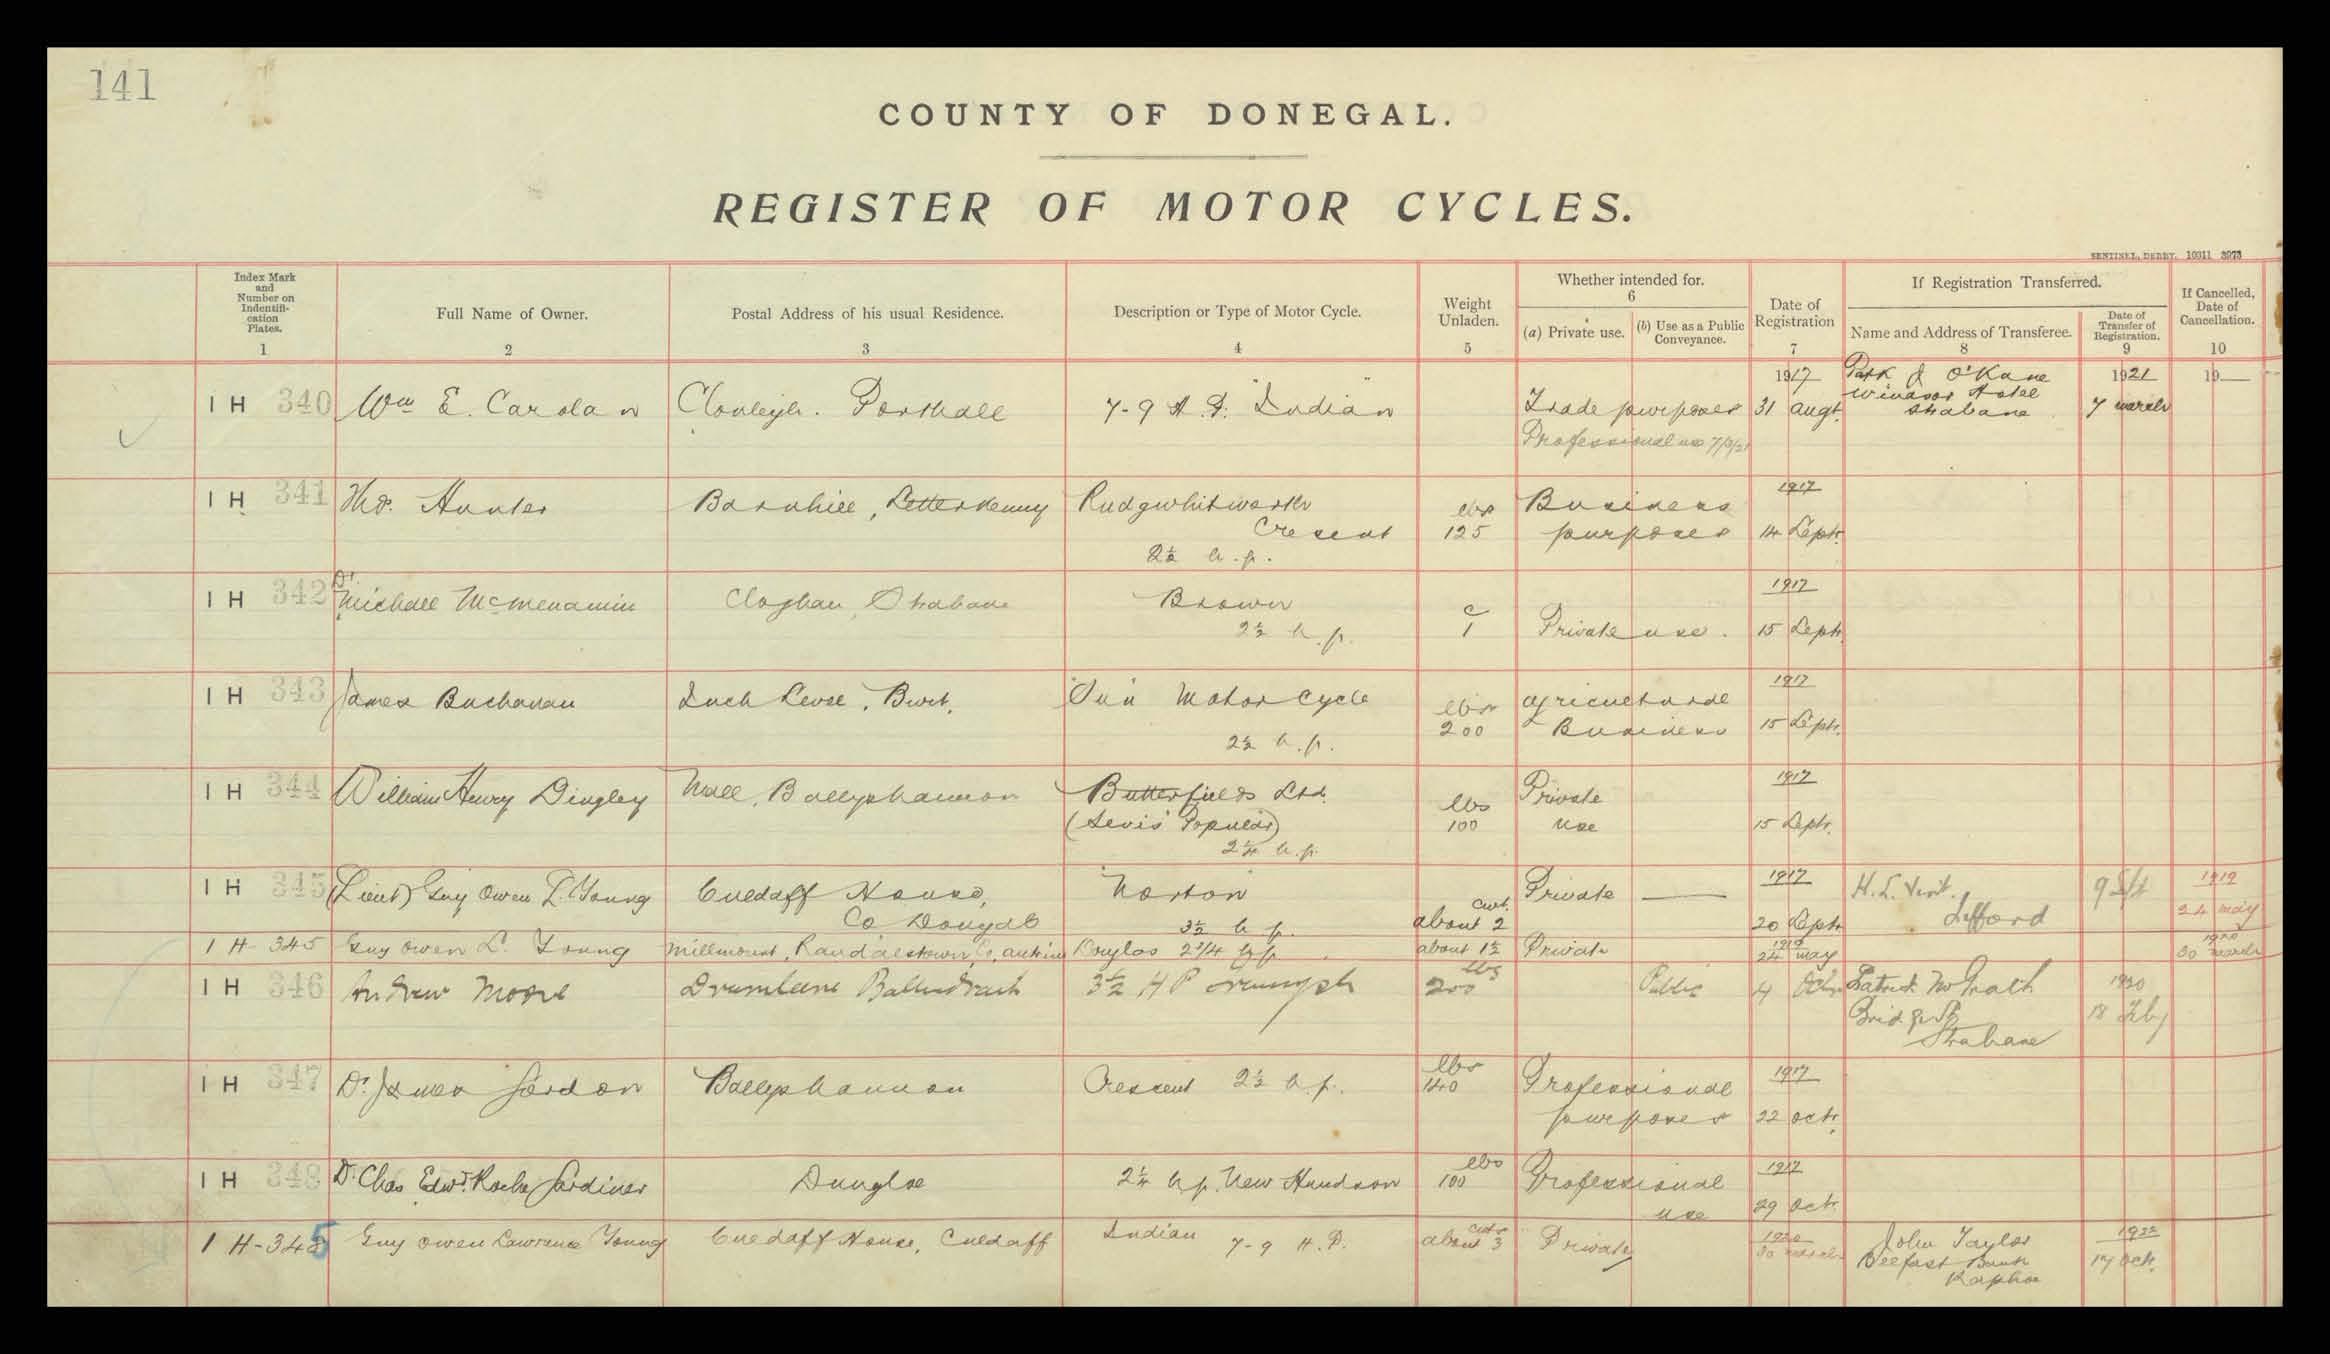 141
COUNTY OF DONEGAL.
REGISTER OF MOTOR CYCLES.
SENTINEL, DERRY. 10311 3973
Index Mark and Number on Indentifi-cation Plates. 1
Full Name of Owner. 2
Postal Address of his usual Residence. 3
Description or Type of Motor Cycle. 4
Weight Unladen. 5
Whether intended for. 6
(a) Private use.
(b) Use as a Public Conveyance.
Date of Registration 7
If Registration Transferred.
Name and Address of Transferee. 8
Date of Transfer of Registration. 9
If Cancelled, Date of Cancellation. 10
1917 Patk J O'Kane 1921 19
IH 340 Wm E. Carolan Clonleigh. Porthall 7-9 H.P. "Indian" Trade purposes 31 Augt. Windsor Hotel Strabane 7 March
Professional use 7/3/21
1917
IH 341 Thos. Hunter Barnhill, Letterkenny Rudgwhitworth lbs Business
Crescent 125 purposes 14 Septr.
2½ h.p.
1917
IH 342 Dr. Michael McMenamin Cloghan, Strabane Brown c
2½ h.p. 1 Private use. 15 Septr.
1917
IH 343 James Buchanan Inch Level, Burt. "Sun" Motor Cycle lbs Agricultural
200 Business 15 Septr.
2½ h.p.
1917
IH 344 William Henry Dingley Mall, Ballyshannon Butterfields Ltd. lbs Private
(Levis Popular) 100 use 15 Septr.
2¼ h.p.
1917 1919
IH 345 (Lieut) Guy Owen L. Young Culdaff House, Norton cwt. Private H.L. Lifford 24 May
Co Donegal 3½ h.p. about 2 20 Septr
1919 1920
IH-345 Guy Owen L. Young Millmount, Randalstown, Co. Antrim Douglas 2¾ h.p. about 1½ Private 24 May 30 March
IH 346 Andrew Moore Ballindrait 3½ HP Triumph lbs 200 Public 4 Octr Patrick McGrath 1920
Bridge St 18 Feby
Strabane
1917
IH 347 Dr. James Gordon Ballyshannon Crescent 2½ h.p. lbs 140 Professional
purposes 22 Octr.
1917
IH 348 Dr. Chas Edwd. Roche Gardiner Dungloe 2¼ h.p. New Hudson lbs 100 Professional
use 29 Octr.
1920 1922
IH-345 Guy Owen Lawrence Young Culdaff House, Culdaff Indian 7-9 H.P. cwts about 3 Private 30 March John Taylor
Belfast Bank 17 Oct.
Raphoe